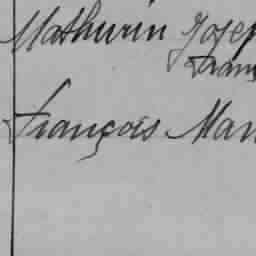 Mathurin Josep
Fran
François Mar